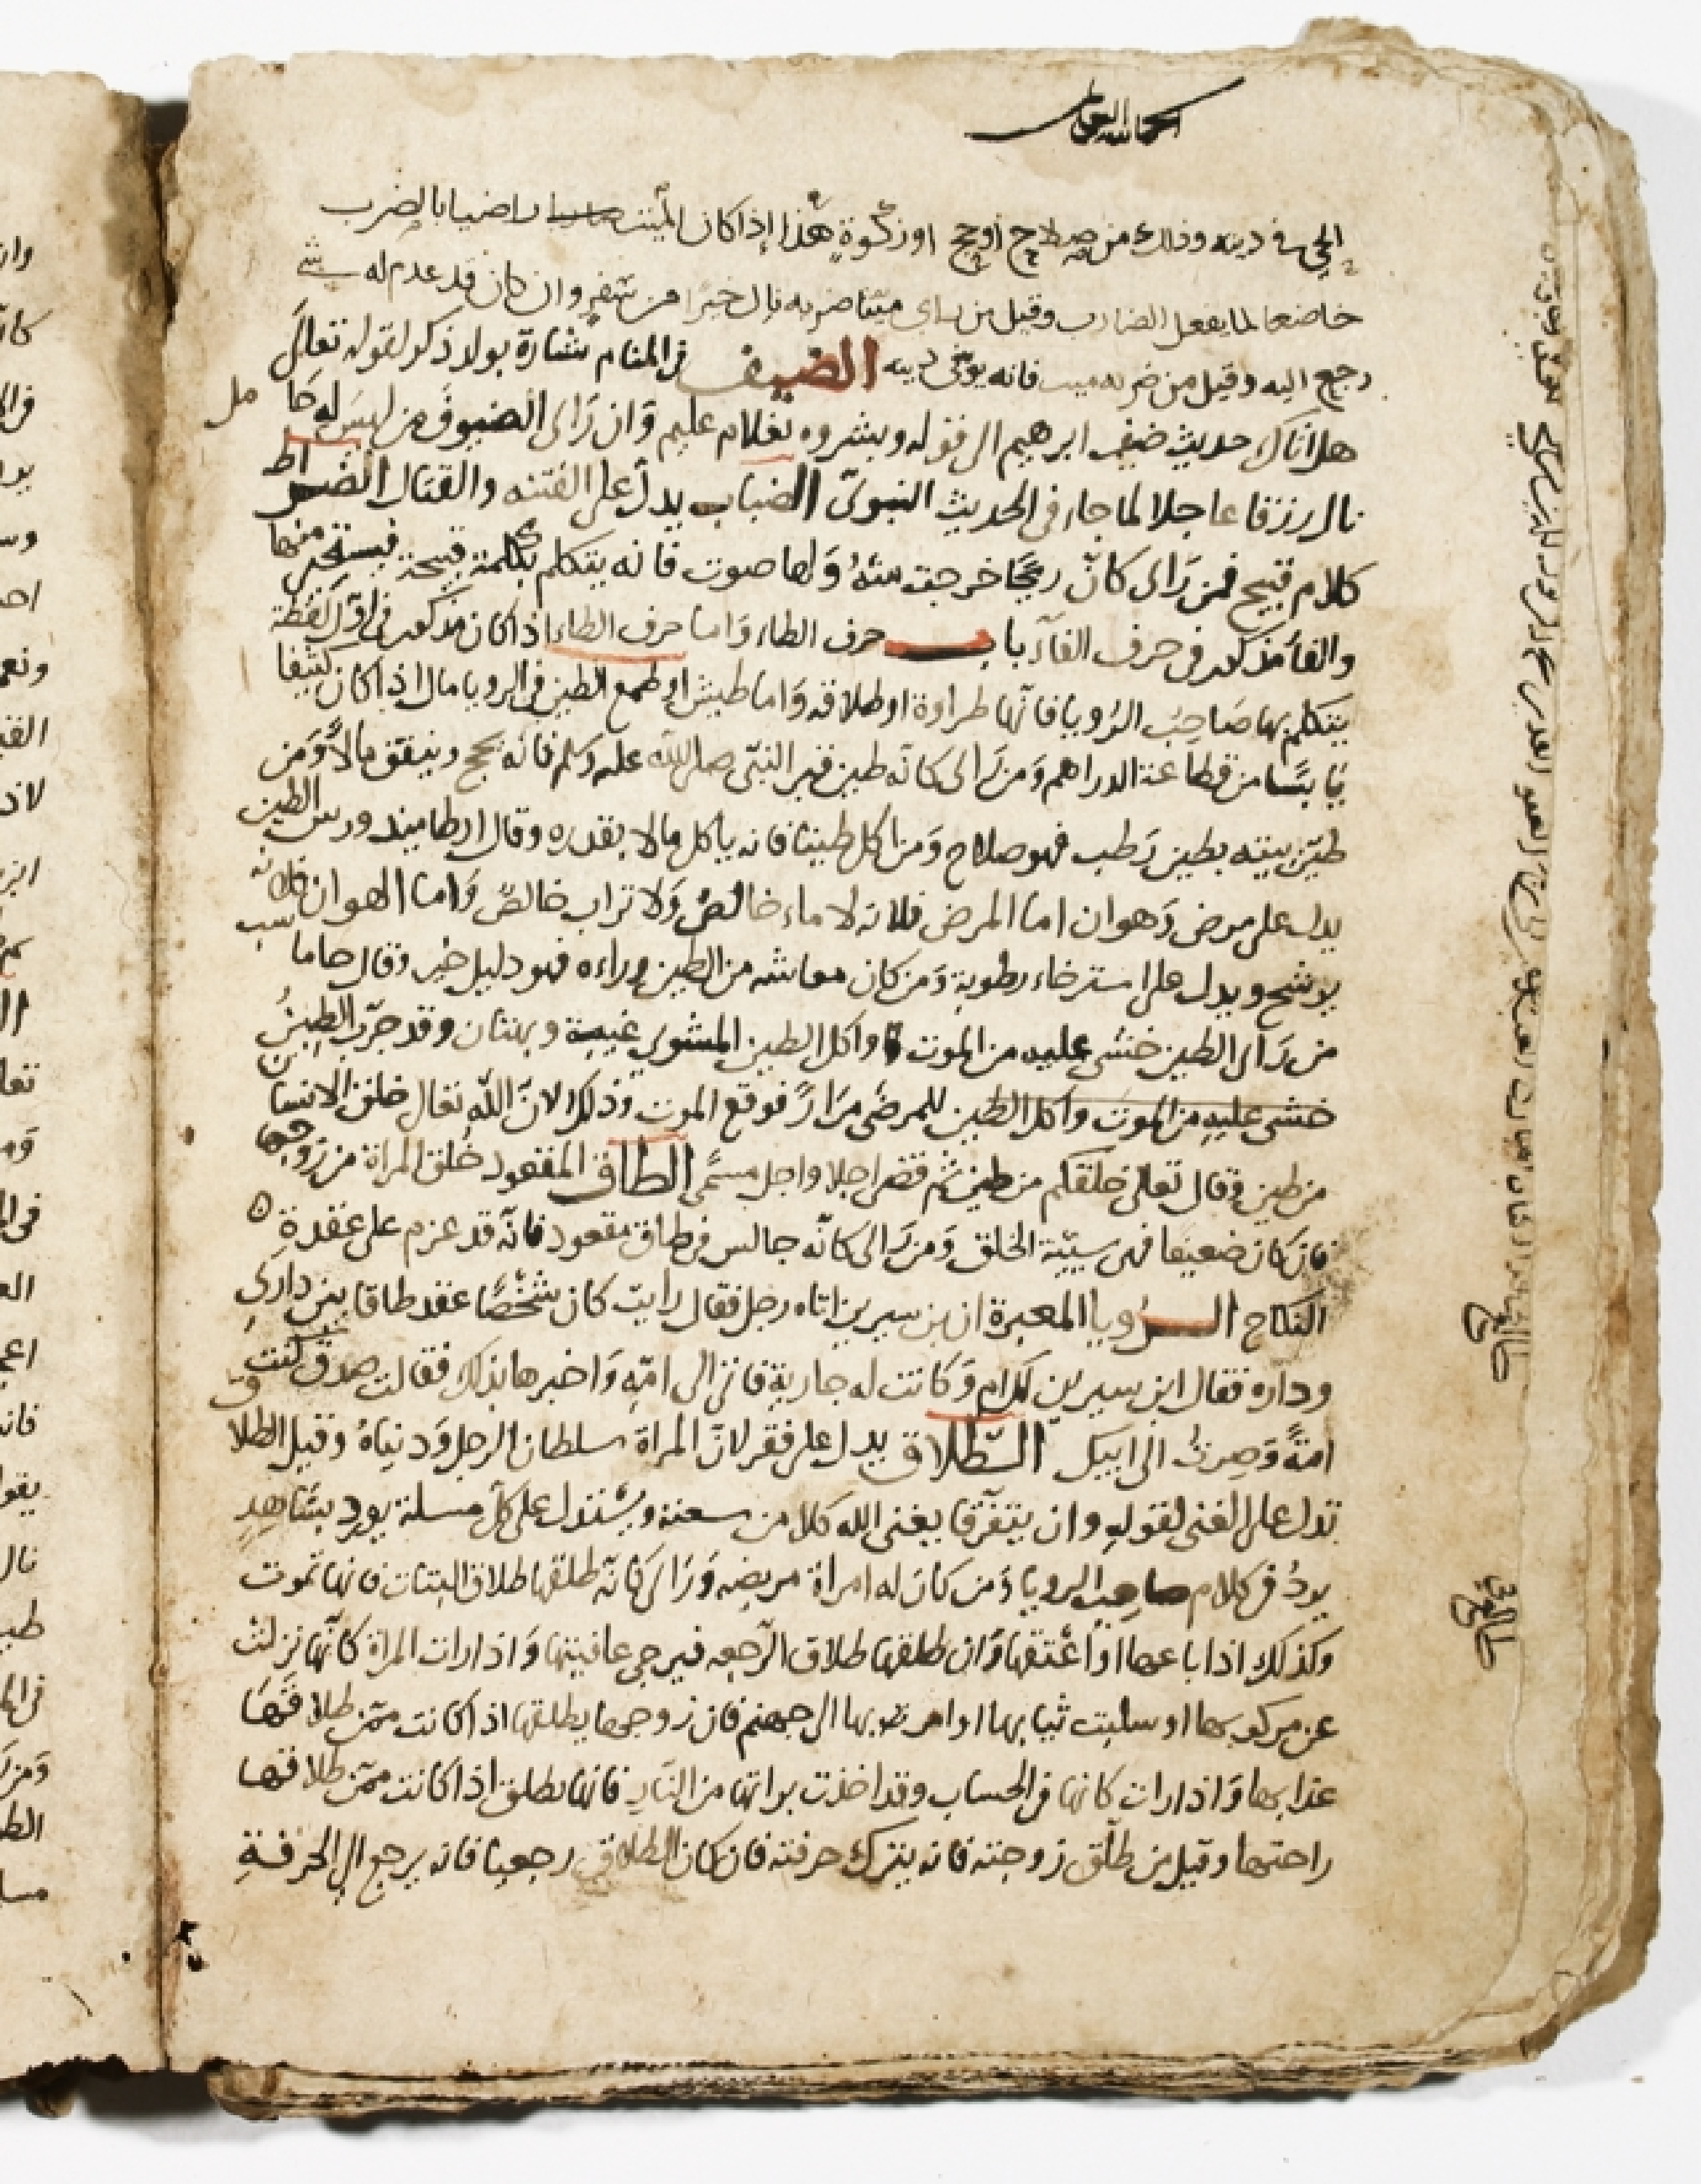 الحي في دينه وذلك من صلاح أوحج اوزكوة هذا إذا كان الميت راضيا بالضرب
خاضعا لما يفعل الضارب وقيل من راى ميتا ضربه نال خيرا من سفر وان كان قد عدم له شي
رجع اليه وقيل من ضربه ميت فانه يوفي دينه الضيف في المنام بشارة بولد ذكر لقوله تعالى
هل اتاك حديث ضيف ابرهيم الى قوله وبشروه بغلام عليم وَان رَاى الضيوف من ليس له حا مل
نال رزقا عاجلا لما جاء في الحديث النبوى الضباب يدل على الفتنه والقتال الضراط
كلام قبيح فمن رَاى كانّ ريحًا خرجت منهُ وَلها صوت فانه يتكلم بكلمة قبيحة فيستخر منها
والفا مذكور في حرف الفآء باب حرف الطاء وَاما حرف الطاء اذا كان مذكور في اوّل لفظة
يتكلم بها صَاحِبُ الرُويا فانّها طراوة اوطلاقه وَاما طيش اوطمع الطين في الرويا مال اذا كان كثيفا
يابسًا من قطاعة الدراهم وَمن رَاى كانّه طين قبر النبّى صلى الله عليه وسلم فانّه يحج وينفق مالاً وَمن
طيّن بيته بطين رَطب فهو صلاح وَمن اكل طينا فانه ياكل مالا بقدره وقال ارطاميدورس الطين
يدل على مرض وَهوان اما المرض فلانه لا ماء خالصٌ وَلا تراب خالصٌ وَاما الهوان فلانه
يوسخ ويدل على استرخاء رطوبة وَمن كان معاشه من الطين وراءه فهو دليل خير وقال جاما سب
من رَاى الطين خشي عليه من الموت واكل الطين المشوي غيبة وبهتان وقد جرّب الطينُ
خشى عليه من الموت واكل الطين للمرضى مرَارً فوقع الموت وذلك لانّ الله تعالى خلق الانسان
من طين وقال تعالى خلقكم من طين ثم قضى اجلا واجل مسمًى الطاق المعقود خلق المراة من زوجها
فان كان ضعيفا فهى سيّئة الخلق وَمن رَاى كانّه جالس في طاق معقود فانّه قد عزم على عقدةِ
النكاح الرُويا المعبرة ان بن سيرين اتاه رجل فقال رايت كان شخصًا عقد طاقا بين داري
وداره فقال ابن سيرين لك ام وَكانت له جارية فاتى الى امّه وَاخبرها بذلك فقالت صدق كنت
امةً وَصِرتُ الى ابيك الطّلاق يدل على فقر لانّ المراة سلطان الرجل وَدنياهُ وقيل الطلاق
تدل على الغنى لقوله وان يتفرّقا يغنى الله كلا من سعته ويستدل على كل مسلة يورد بشاهدٍ
يردُ في كلام صاحب الرويا وَمن كان له امراة مريضه وَرَاى كانّه طلقها طلاق البتات فانها تموت
وكذلك اذا باعها اوْ اعتقها وَان طلقها طلاق الرّجعه فيرجى عافيتها وَاذا رات المراة كانّها نزلت
عن مركوبها او سلبت ثيابها او امر بها الى جهنم فان زوجها يطلقها اذا كانت ممّن طلاقها
عذابها وَاذا رات كانها في الحساب وقد اخذت براتها من النار فانها تطلق اذا كانت ممّن طلاقها
راحتها وقيل من طلّق زوجته فانه يترك حرفته فان كان الطلاق رجعيا فانه يرجع الى الحرفةِ